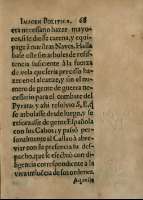 IMAGEN POLITICA. 68
era necessario hazer mayo-
res, si se diesse carena, y equi-
page à nuestras Naves. Halla
base este sin arboles de resis-
tencia suficiente à la fuerza
de vela que seria preciso ha-
zer en el alcanze, y sin el nu-
mero de gente de guerra ne-
cessario para el combate del
Pyrata: y asi resolvió S. E. q̃
se arbolasse desde luego, y se
reforzasse de gente Española
con sus Cabos: y passó per-
sonalmente al Callao à abre-
viar con su presencia su des-
pacho, que se efectuó con di-
ligencia correspondiente à la
viva influencia de sus ordenes.